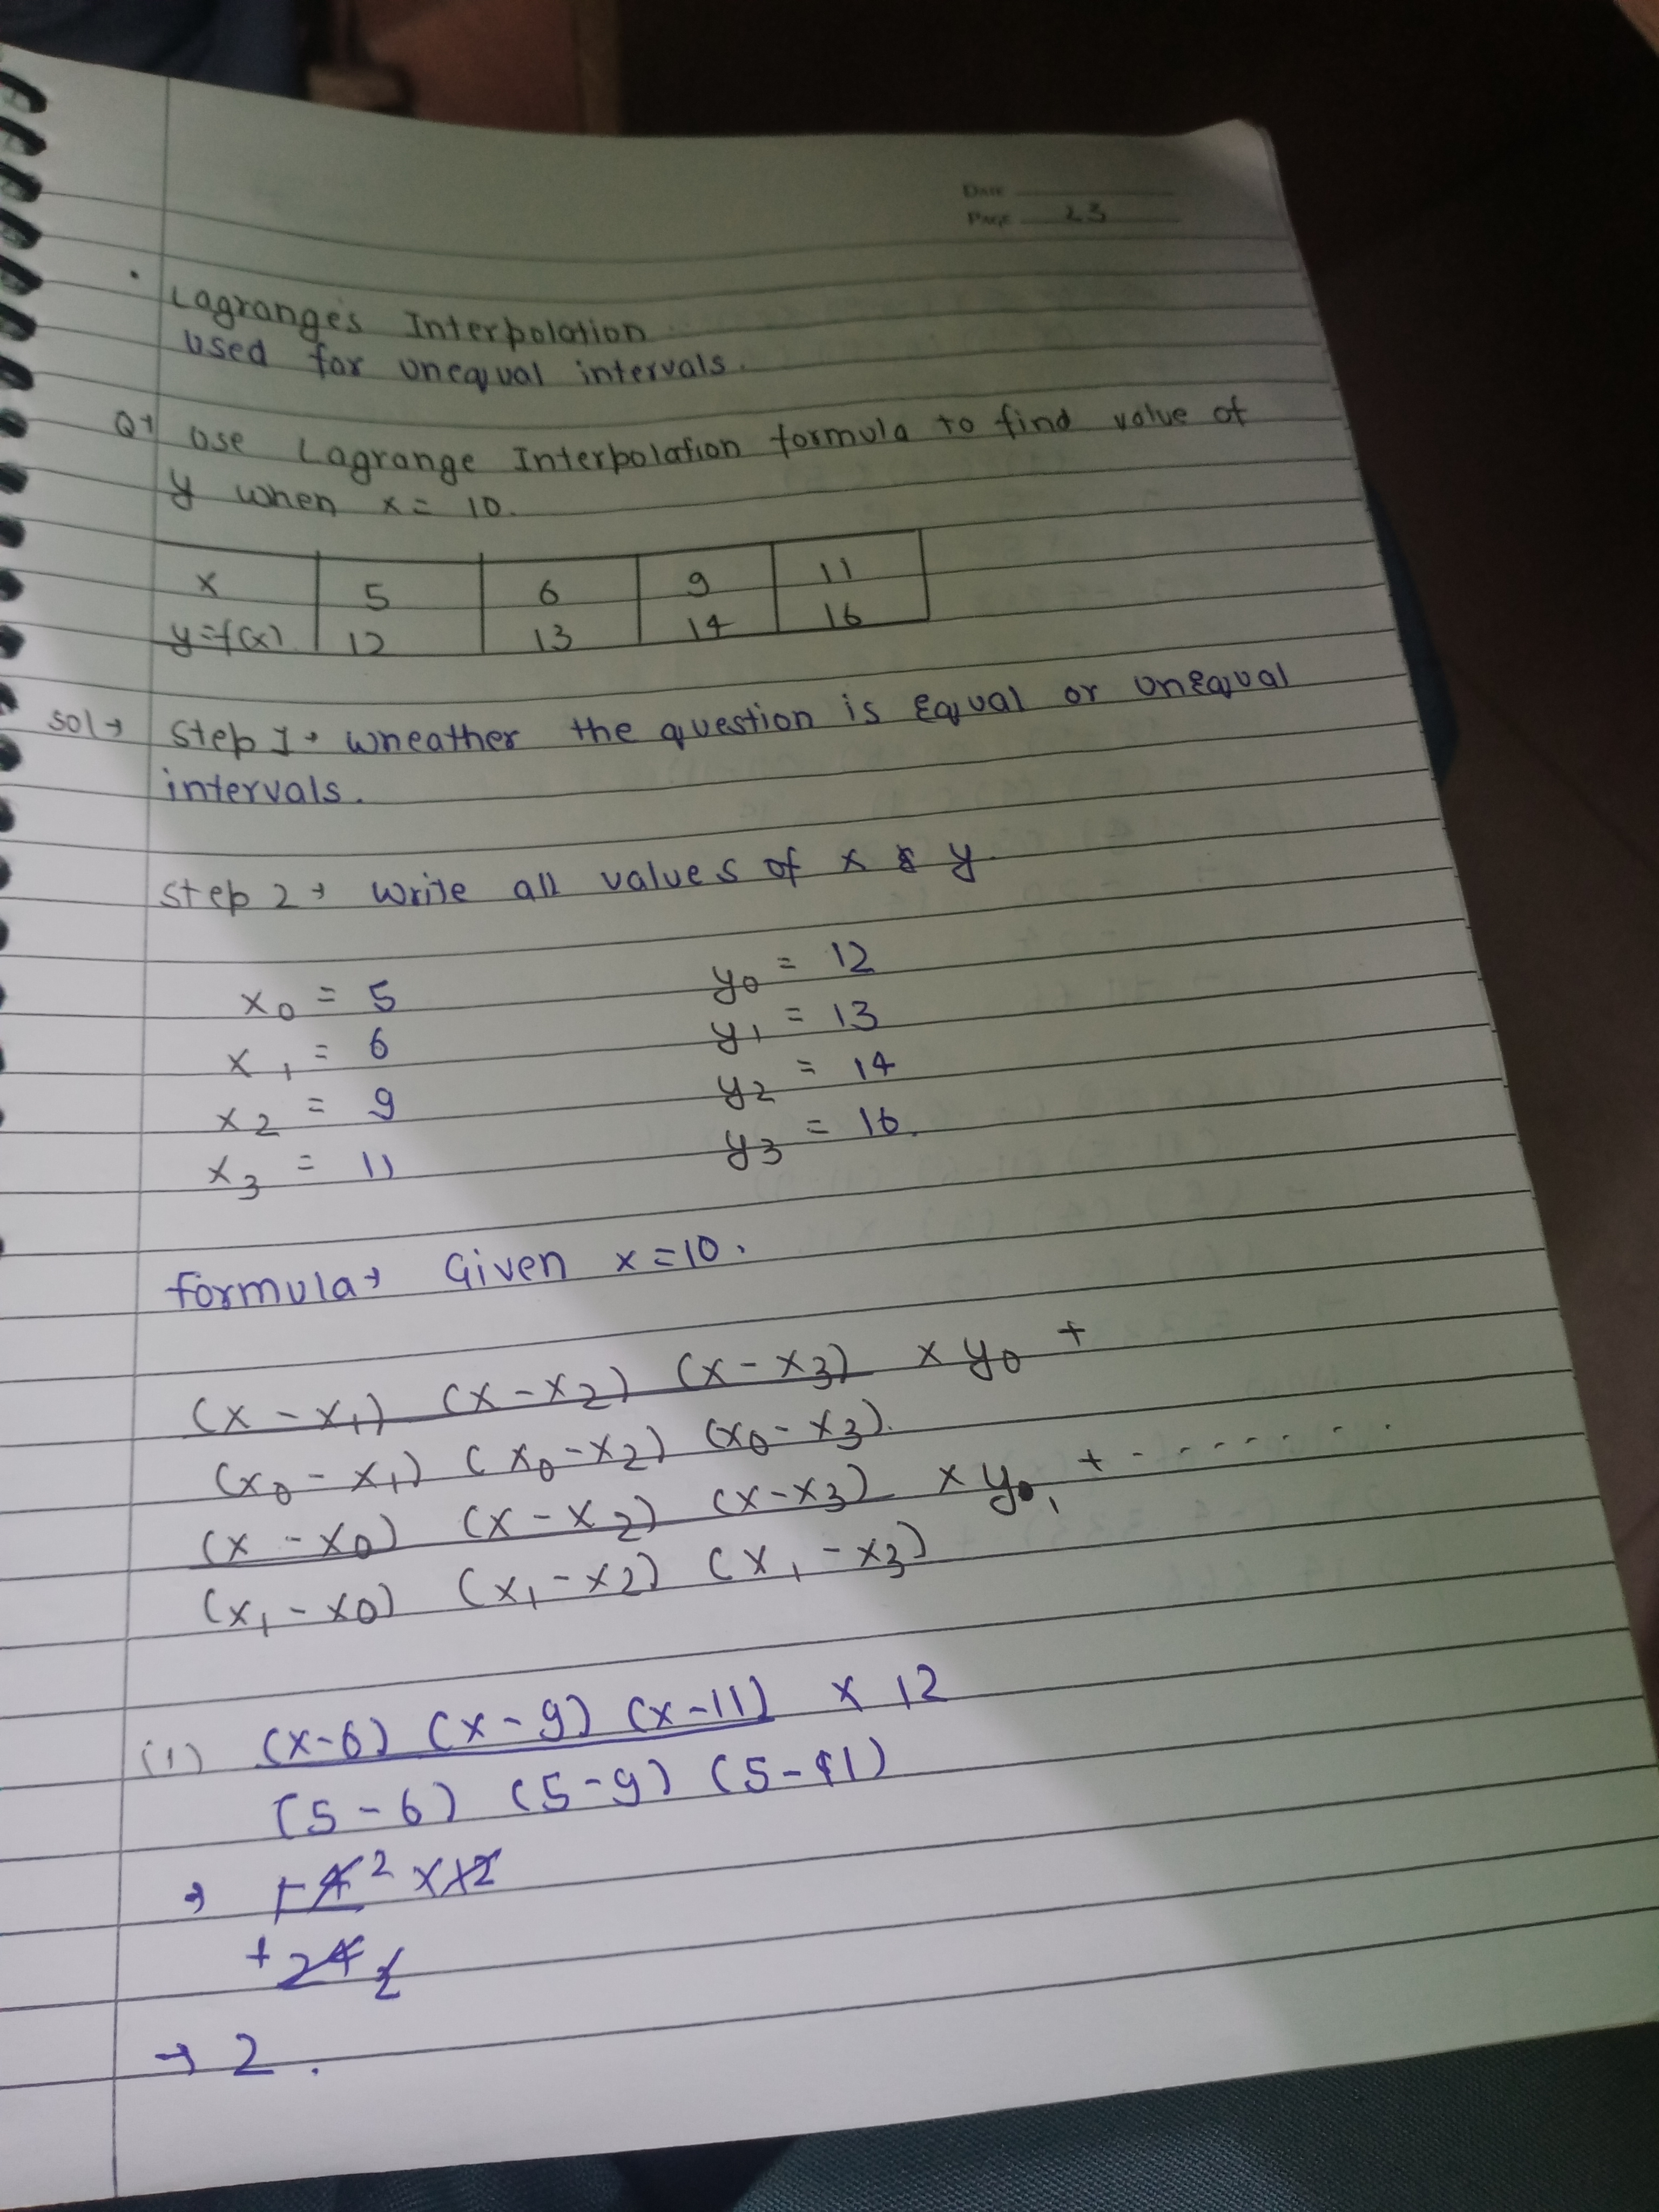 DATE
PAGE 23
• Lagrange's Interpolation
used for unequal intervals.
Q→ Use Lagrange Interpolation formula to find value of
y when x = 10.
x 5 6 9 11
y=f(x) 12 13 14 16
Sol→ Step 1→ wheather the question is equal or unequal
intervals.
Step 2→ Write all values of x & y.
x₀ = 5 y₀ = 12
x₁ = 6 y₁ = 13
x₂ = 9 y₂ = 14
x₃ = 11 y₃ = 16.
formula→ Given x=10.
(x - x₁) (x - x₂) (x - x₃) × y₀ +
(x₀ - x₁) (x₀ - x₂) (x₀ - x₃).
(x - x₀) (x - x₂) (x - x₃) × y₁ + - - - - - - -
(x₁ - x₀) (x₁ - x₂) (x₁ - x₃)
(1) (x-6) (x-9) (x-11) × 12
(5-6) (5-9) (5-11)
→ -4 2 × 12
+24 2
→ 2.